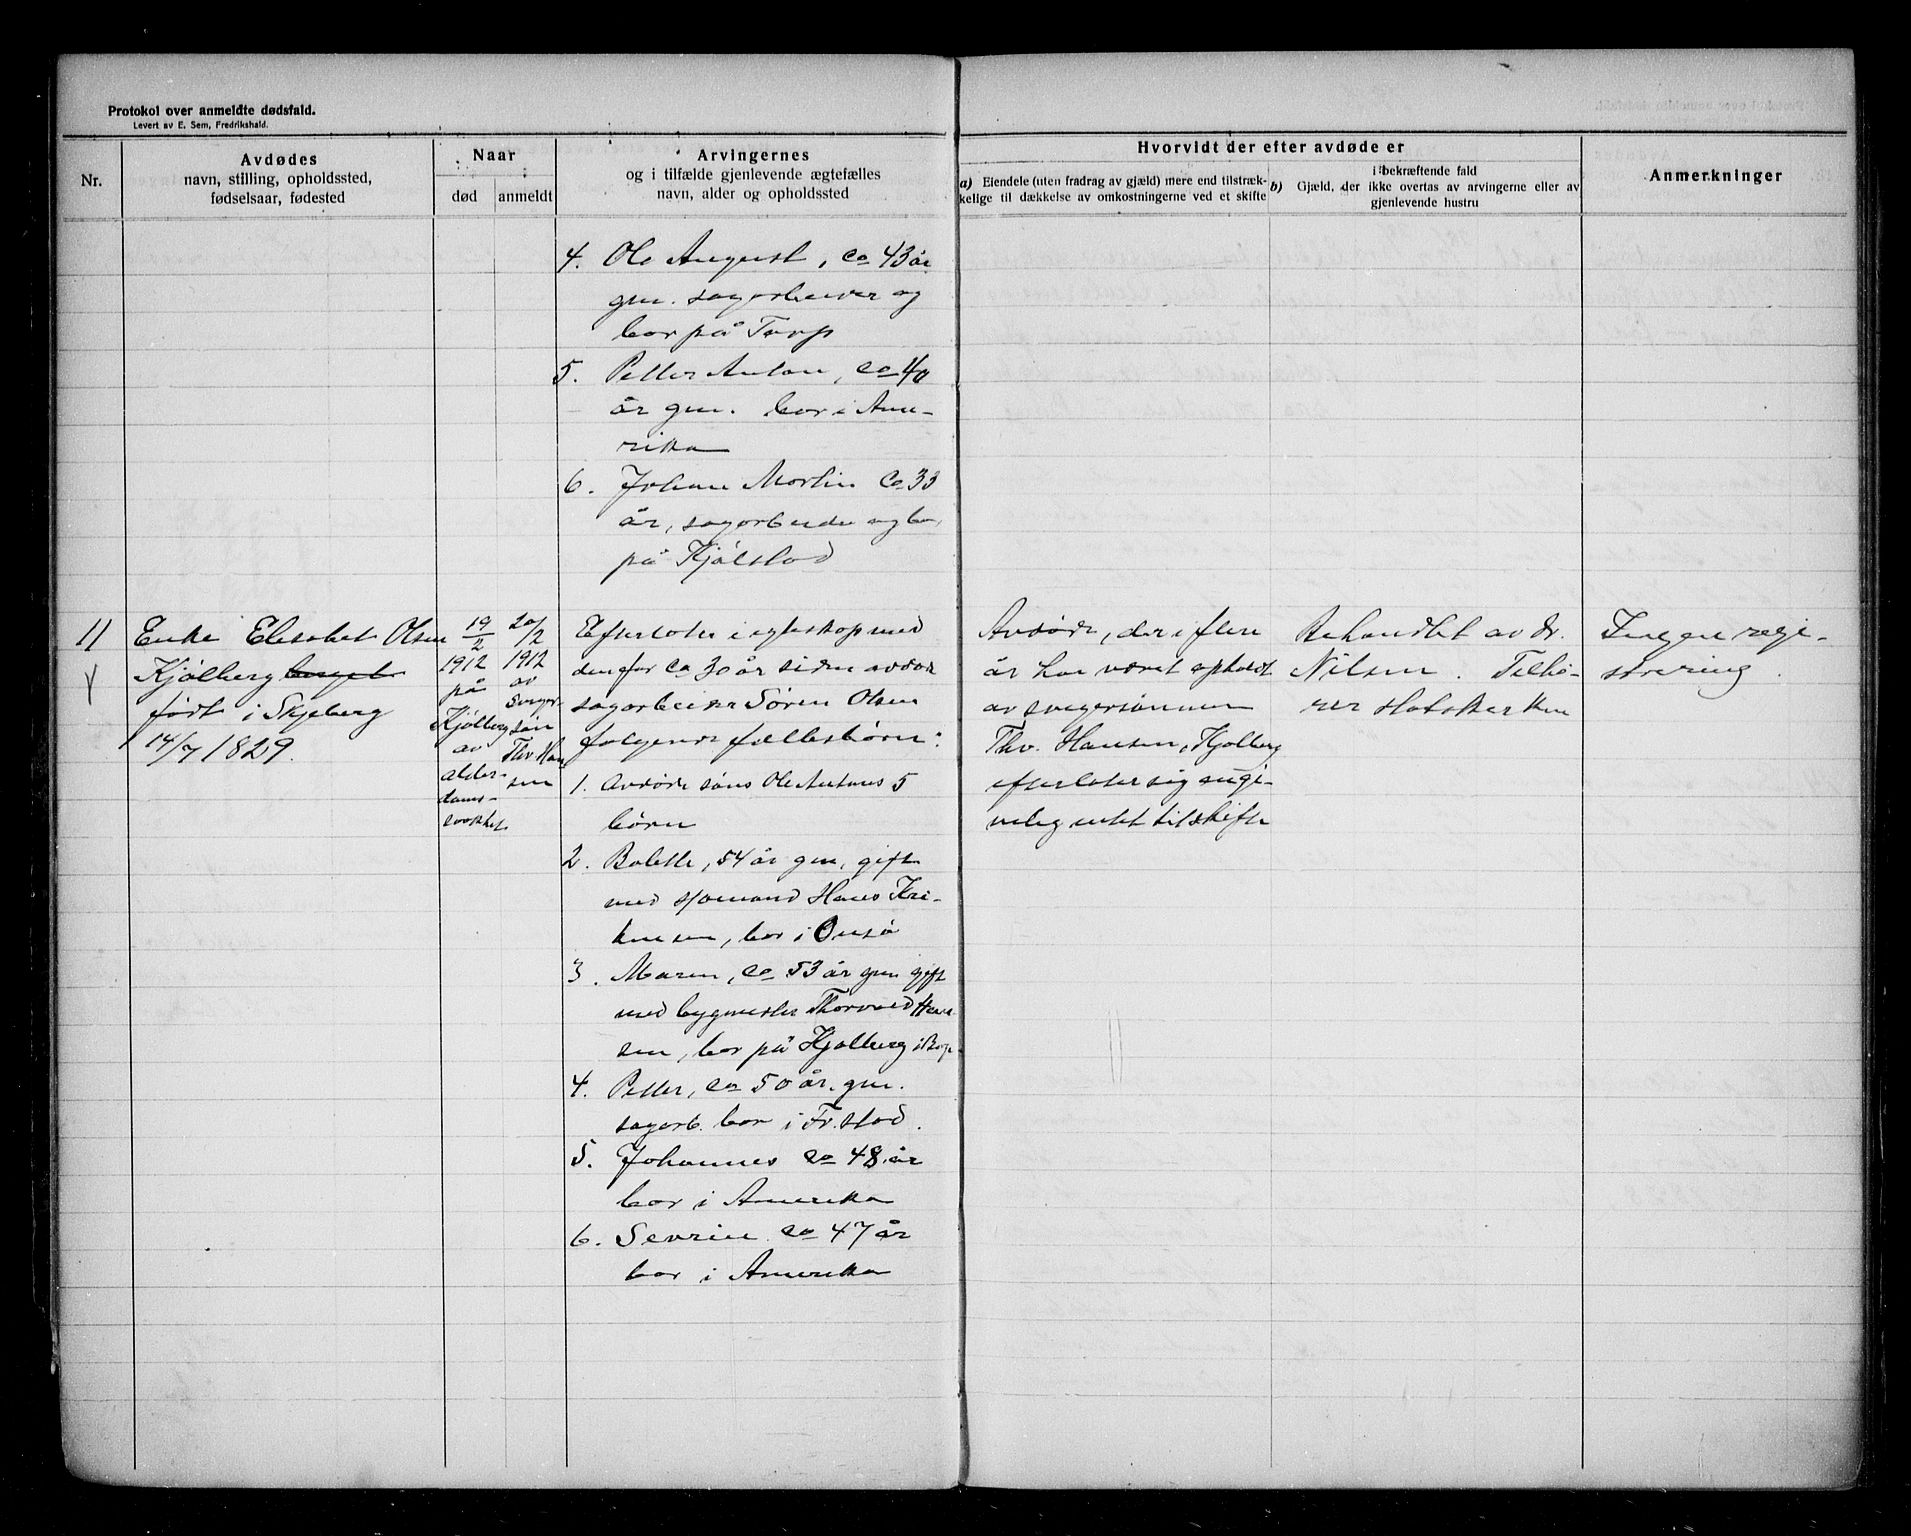 Protokol over anmeldte dødsfald.
Levert av E. Sem, Fredrikshald.
Nr.
Avdødes
navn, stilling, opholdssted,
fødselsaar, fødested
Naar
død
anmeldt
Arvingernes
og i tilfælde gjenlevende ægtefælles
navn, alder og opholdssted
Hvorvidt der efter avdøde er
a) Eiendele (uten fradrag av gjæld) mere end tilstræk-
kelige til dækkelse av omkostningerne ved et skifte
i bekræftende fald
b) Gjæld, der ikke overtas av arvingerne eller av
gjenlevende hustru
Anmerkninger
4. Ole August, ca 43 år
gm. sagarbeider og
bor på Torp
5. Petter Anton, ca 40
år gm. bor i Ame-
rika
6. Johan Martin ca 33
år, sagarbeider og bor
på Kjølstad
11
Enke Elisabet Olsen
Kjølberg
født i Skjeberg
14/7 1829.
19/2
1912
på
Kjølberg
av
alder-
doms-
svakhet
20/2
1912
av
sviger
søn
Thv. Han
sen
Efterlater i egteskap med
den for ca 30 år siden avdøde
sagarbeider Søren Olsen
følgende fællesbørn:
1. Avdøde søns Ole Antons 5
børn
2. Bolette, 54 år gm, gift
med sjømand Hans Kri-
sen, bor i Onsø
3. Maren, ca 53 år gm gift
med bygmester Thorvald Han
sen, bor på Kjølberg i Borge
4. Petter, ca 50 år. gm.
sagarb. bor i Fr.stad.
5. Johannes ca 48 år
bor i Amerika
6. Sevrin ca 47 år
bor i Amerika
Avdøde, der i flere
år har været opholdt
av svigersønnen
Thv. Hansen, Kjølberg
efterlater sig angi-
velig intet til skifte
Behandlet av dr.
Nilsen. Tilhø-
rer Statskirken
Ingen regi-
strering.